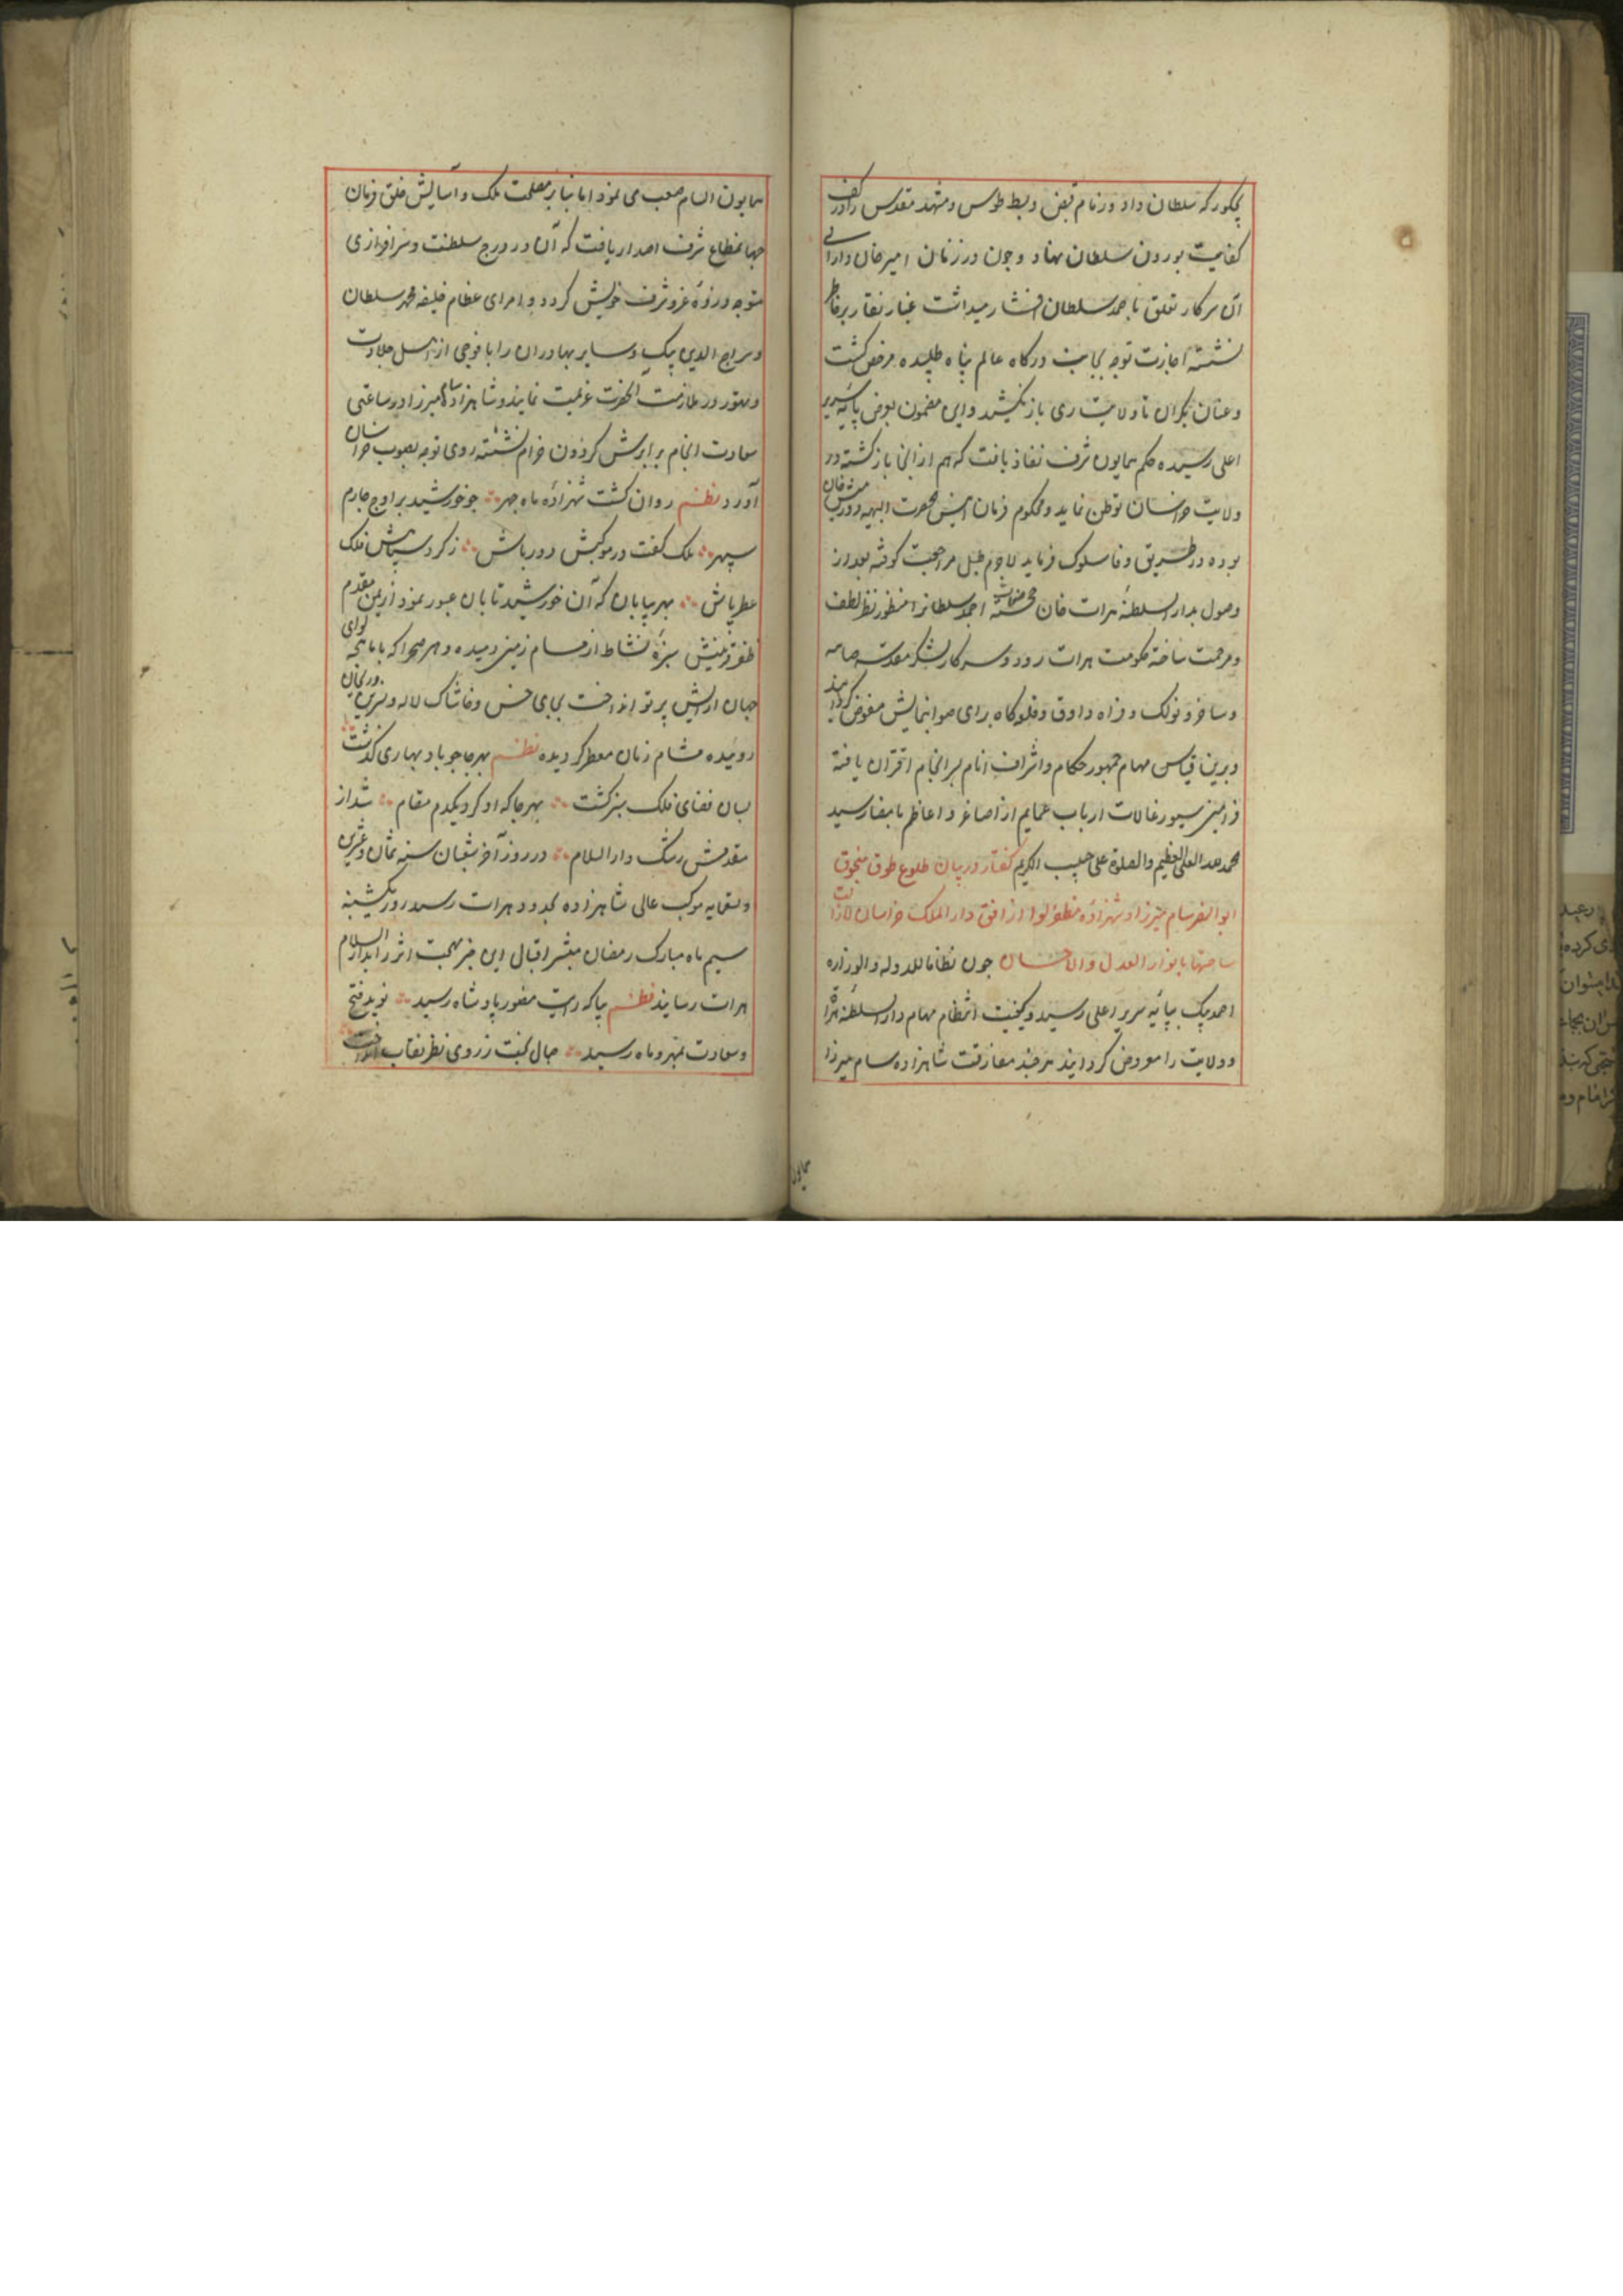 که سلطان داد و زمام قبض و بسط طوس و مشهد مقدس را در کف
کفایت بورون سلطان نهاد و چون در زمان امیر خان دارایی
آن سرکار تعلق باحمد سلطان افشار میداشت غبار نقار بر خاطر
نشسته اجازت توجه بجانب درگاه عالم پناه طلبیده مرخص گشت
و عنان یکران تا ولایت ری باز نکشید و این مضمون بعرض پایه سریر
اعلی رسیده حکم همایون شرف نفاذ یافت که هم از انجا بازگشته در
ولایت خراسان توطن نماید و محکوم فرمان دورمیش خان
بوده در طریق وفا سلوک فرماید لاجرم طبل مراجعت کوفته بعد از
وصول بدار السلطنه هرات خان احمد سلطانرا منظور نظر لطف
و مرحمت ساخته حکومت هرات رود و سرکار
و ساخر و تولک و فراه و اوق و قلعه کاه برای صوابنمایش مفوض گردانید
و برین قیاس مهام جمهور حکام و اشراف انام بسرانجام اقتران یافته
فرامین سیورغالات ارباب عمایم از اصاغر و اعاظم بامضا رسید
العلی العظیم والصلوة علی حبیب الکریم گفتار در بیان طلوع طوق منجوق
ابو النصر سام میرزا و شهزاده مظفر لوا از افق دار الملک خراسان لازالت
ساحتها بانوار العدل والاحسان چون نظاما للدوله والوزاره
احمد بیک بپایه سریر اعلی رسید و کیفیت انتظام مهام دار السلطنه هراة
و ولایت را معروض گردانید هر چند مفارقت شاهزاده سام میرزا
همایون
همایون بسیار صعب می نمود اما بنابر مصلحت ملک و آسایش خلق فرمان
جهانمطاع شرف اصدار یافت که آن در درج سلطنت و سرافرازی
متوجه ذروه عز و شرف خویش گردد و امرای عظام خلیفه محمد سلطان
و سراج الدین بیک و سایر بهادران را با فوجی از اهل جلادت
و تهور در ملازمت انحضرت عزیمت نمایند و شاهزاده سام میرزا در ساعتی
سعادت انجام بر ابرش گردون خرام نشسته روی توجه بصوب خراسان
آورد نظم روان گشت شهزاده ماه چهر چو خورشید بر اوج چارم
سپهر ملک گفت در موکبش دور باش ز گرد سپاهش فلک
عطرپاش بهر بیابان که آن خورشید تابان عبور نمود از یمن مقدم
ظفر قرینش سبزه نشاط از مسام زمین دمیده و هر صحرا که با ماهچه لوای
جهان ارایش پرتو انداخت بجای خس و خاشاک لاله و نسرین و ریحان
روئیده مشام زمان معطر گردیده نظم بهر جا چو باد بهاری گذشت
بسان فضای فلک سبز گشت بهر جا که او کرد یکدم مقام شد از
مقدمش رشک دار السلام در روز آخر شعبان سنه ثمان و عشرین
و تسعمایه موکب عالی شاهزاده بحدود هرات رسید روز یکشنبه
سیم ماه مبارک رمضان مبشر اقبال این خبر بهجت اثر را بدار السلام
هرات رسانید نظم بیا که رایت منصور پادشاه رسید نوید فتح
و سعادت بمهر و ماه رسید جمال بخت ز روی ظفر نقاب انداخت